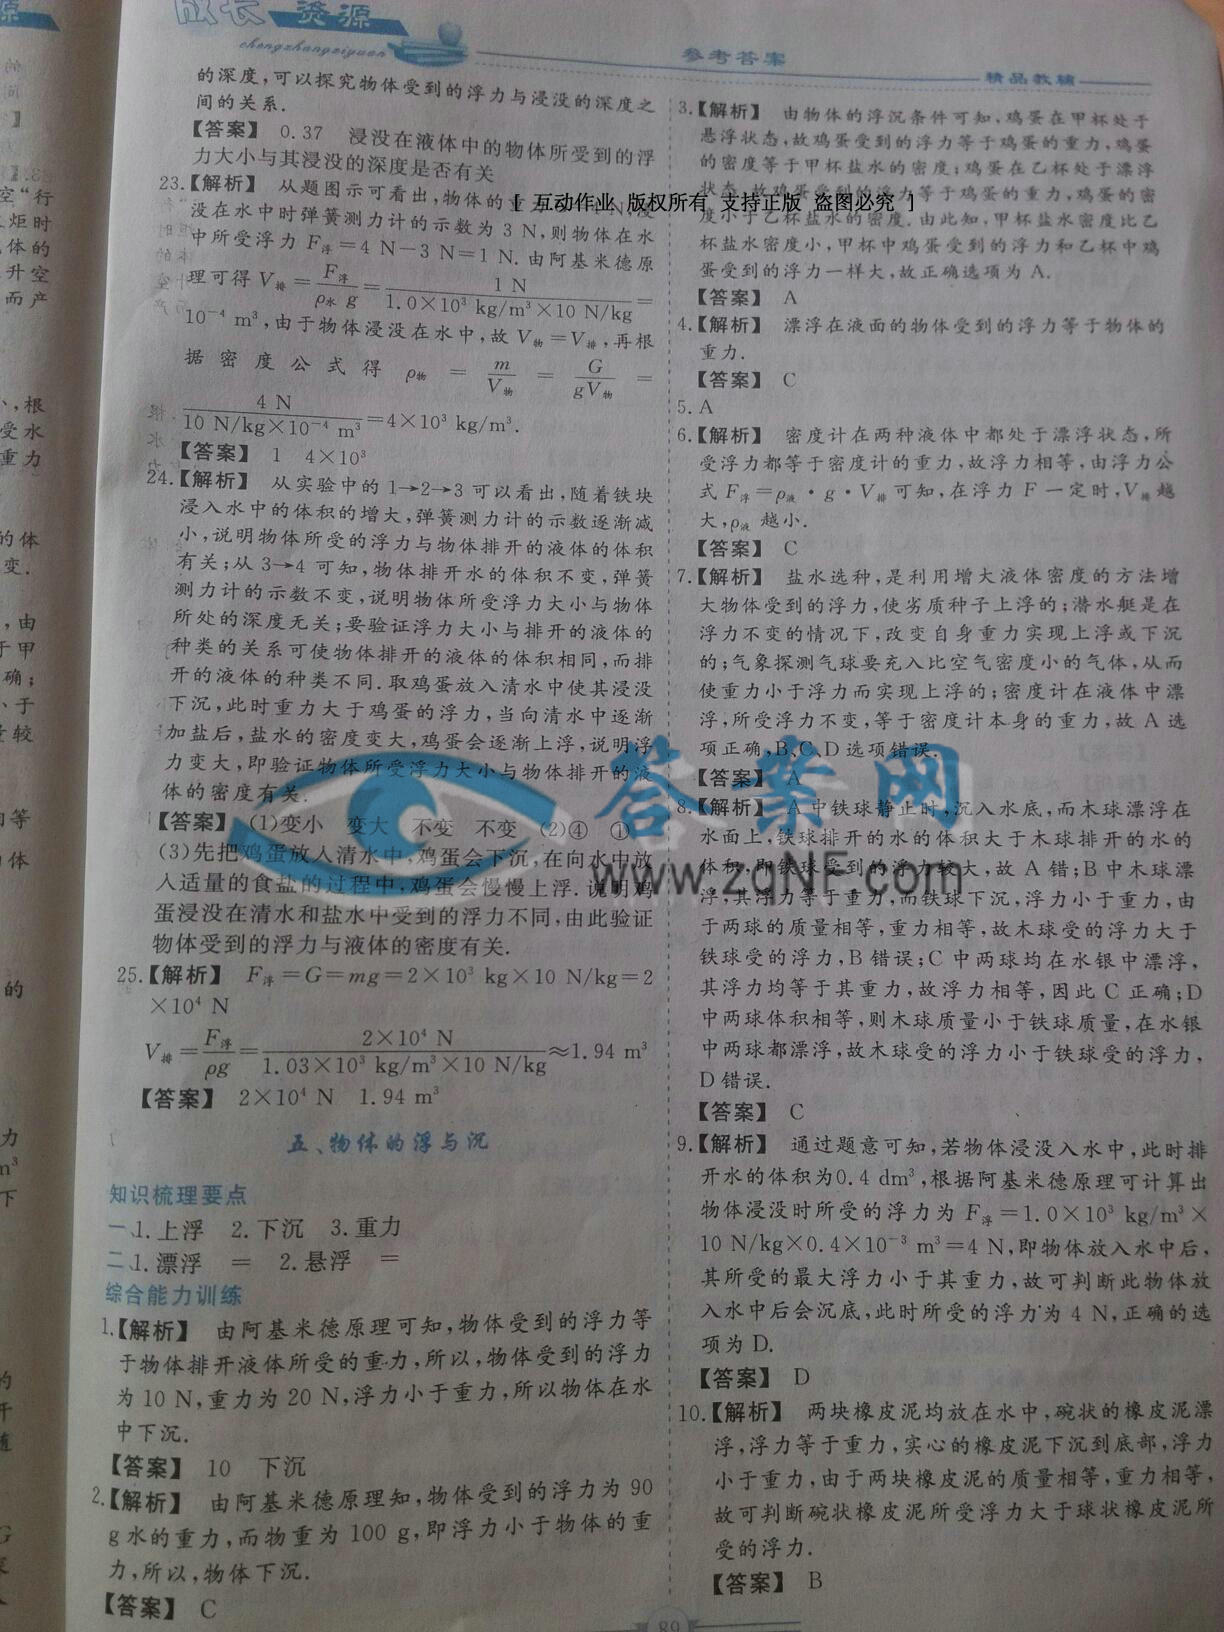 成长 资源
chengzhangziyuan
参考答案
精品教辅
的深度,可以探究物体受到的浮力与浸没的深度之
间的关系.
【答案】 0.37 浸没在液体中的物体所受到的浮
力大小与其浸没的深度是否有关
23.【解析】 从题图示可看出,物体的重
没在水中时弹簧测力计的示数为 3 N,则物体在水
中所受浮力 F浮=4 N-3 N=1 N.由阿基米德原
理可得 V排=F浮/ρ水 g=1 N/1.0×10³ kg/m³×10 N/kg=
10⁻⁴ m³,由于物体浸没在水中,故 V物=V排,再根
据密度公式得 ρ物 = m/V物 = G/gV物 =
4 N/10 N/kg×10⁻⁴ m³=4×10³ kg/m³.
【答案】 1 4×10³
24.【解析】 从实验中的 1→2→3 可以看出,随着铁块
浸入水中的体积的增大,弹簧测力计的示数逐渐减
小,说明物体所受的浮力与物体排开的液体的体积
有关;从 3→4 可知,物体排开水的体积不变,弹簧
测力计的示数不变,说明物体所受浮力大小与物体
所处的深度无关;要验证浮力大小与排开的液体的
种类的关系可使物体排开的液体的体积相同,而排
开的液体的种类不同.取鸡蛋放入清水中使其浸没
下沉,此时重力大于鸡蛋的浮力,当向清水中逐渐
加盐后,盐水的密度变大,鸡蛋会逐渐上浮,说明浮
力变大,即验证物体所受浮力大小与物体排开的液
体的密度有关.
【答案】 (1)变小 变大 不变 不变 (2)④ ①
(3)先把鸡蛋放入清水中,鸡蛋会下沉,在向水中放
入适量的食盐的过程中,鸡蛋会慢慢上浮.说明鸡
蛋浸没在清水和盐水中受到的浮力不同,由此验证
物体受到的浮力与液体的密度有关.
25.【解析】 F浮=G=mg=2×10³ kg×10 N/kg=2
×10⁴ N
V排=F浮/ρg=2×10⁴ N/1.03×10³ kg/m³×10 N/kg≈1.94 m³
【答案】 2×10⁴ N 1.94 m³
五、物体的浮与沉
知识梳理要点
一、1.上浮 2.下沉 3.重力
二、1.漂浮 = 2.悬浮 =
综合能力训练
1.【解析】 由阿基米德原理可知,物体受到的浮力等
于物体排开液体所受的重力,所以,物体受到的浮力
为 10 N,重力为 20 N,浮力小于重力,所以物体在水
中下沉.
【答案】 10 下沉
2.【解析】 由阿基米德原理知,物体受到的浮力为 90
g水的重力,而物重为 100 g,即浮力小于物体的重
力,所以,物体下沉.
【答案】 C
3.【解析】 由物体的浮沉条件可知,鸡蛋在甲杯处于
悬浮状态,故鸡蛋受到的浮力等于鸡蛋的重力,鸡蛋
的密度等于甲杯盐水的密度;鸡蛋在乙杯处于漂浮
状态,故鸡蛋受到的浮力等于鸡蛋的重力,鸡蛋的密
度小于乙杯盐水的密度.由此知,甲杯盐水密度比乙
杯盐水密度小,甲杯中鸡蛋受到的浮力和乙杯中鸡
蛋受到的浮力一样大,故正确选项为 A.
【答案】 A
4.【解析】 漂浮在液面的物体受到的浮力等于物体的
重力.
【答案】 C
5. A
6.【解析】 密度计在两种液体中都处于漂浮状态,所
受浮力都等于密度计的重力,故浮力相等,由浮力公
式 F浮=ρ液·g·V排 可知,在浮力 F 一定时,V排 越
大,ρ液 越小.
【答案】 C
7.【解析】 盐水选种,是利用增大液体密度的方法增
大物体受到的浮力,使劣质种子上浮的;潜水艇是在
浮力不变的情况下,改变自身重力实现上浮或下沉
的;气象探测气球要充入比空气密度小的气体,从而
使重力小于浮力而实现上浮的;密度计在液体中漂
浮,所受浮力不变,等于密度计本身的重力,故 A 选
项正确,B、C、D 选项错误.
【答案】 A
8.【解析】 A 中铁球静止时,沉入水底,而木球漂浮在
水面上,铁球排开的水的体积大于木球排开的水的
体积,即铁球受到的浮力较大,故 A 错;B 中木球漂
浮,其浮力等于重力,而铁球下沉,浮力小于重力,由
于两球的质量相等,重力相等,故木球受的浮力大于
铁球受的浮力,B 错误;C 中两球均在水银中漂浮,
其浮力均等于其重力,故浮力相等,因此 C 正确;D
中两球体积相等,则木球质量小于铁球质量,在水银
中两球都漂浮,故木球受的浮力小于铁球受的浮力,
D 错误.
【答案】 C
9.【解析】 通过题意可知,若物体浸没入水中,此时排
开水的体积为0.4 dm³,根据阿基米德原理可计算出
物体浸没时所受的浮力为 F浮=1.0×10³ kg/m³×
10 N/kg×0.4×10⁻³ m³=4 N,即物体放入水中后,
其所受的最大浮力小于其重力,故可判断此物体放
入水中后会沉底,此时所受的浮力为 4 N,正确的选
项为 D.
【答案】 D
10.【解析】 两块橡皮泥均放在水中,碗状的橡皮泥漂
浮,浮力等于重力,实心的橡皮泥下沉到底部,浮力
小于重力,由于两块橡皮泥的质量相等,重力相等,
故可判断碗状橡皮泥所受浮力大于球状橡皮泥所
受的浮力.
【答案】 B
89
[ 互动作业 版权所有 支持正版 盗图必究 ]
答案网
www.zqNF.com